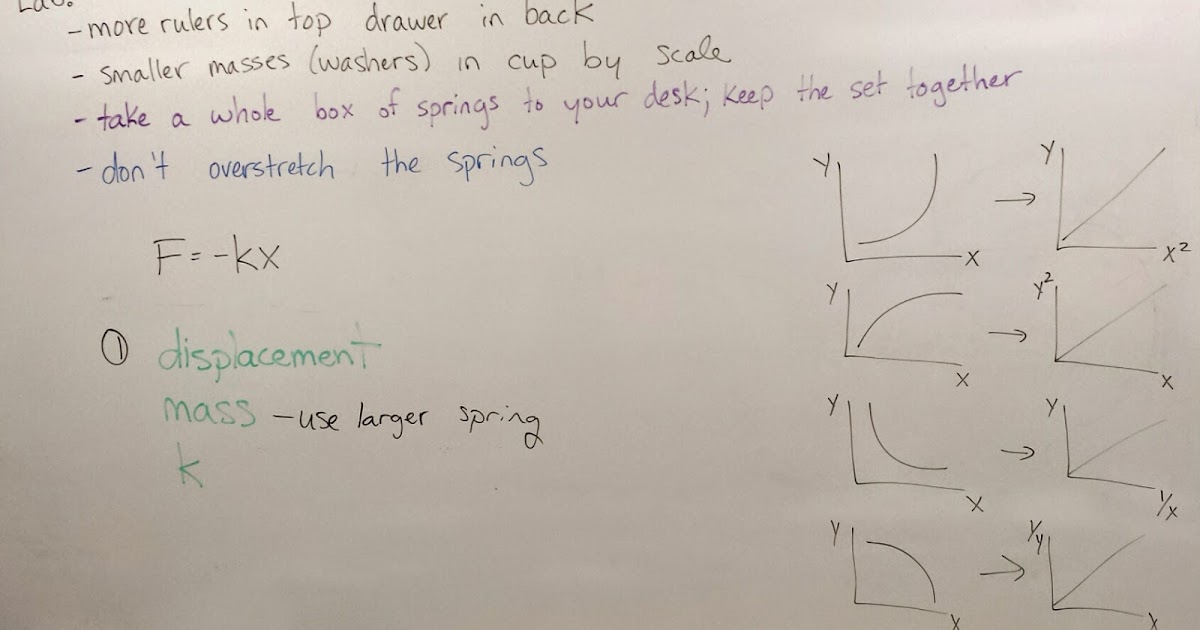 Lab:
- more rulers in top drawer in back
- smaller masses (washers) in cup by scale
- take a whole box of springs to your desk; keep the set together
- don't overstretch the springs
F = -kx
① displacement
mass - use larger spring
k
Y
X
→
Y
X²
Y
X
→
Y²
X
Y
X
→
Y
1/X
Y
X
→
1/Y
X